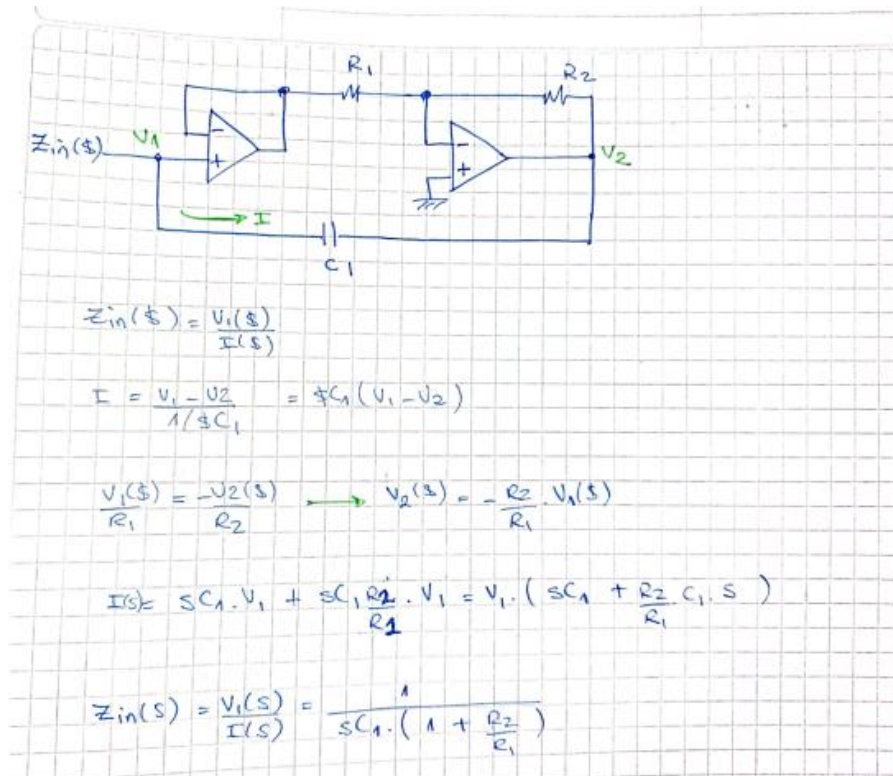 R1
R2
V1
Zin($)
-
+
-
+
V2
I
C1
Zin($) = V1($) / I($)
I = V1 - V2 / 1/$C1 = $C1 (V1 - V2)
V1($) / R1 = -V2($) / R2 → V2($) = - R2 / R1 . V1($)
I(s)= sC1 . V1 + sC1 R2 / R1 . V1 = V1 . ( sC1 + R2 / R1 . C1 . s )
Zin(s) = V1(s) / I(s) = 1 / sC1 . ( 1 + R2 / R1 )